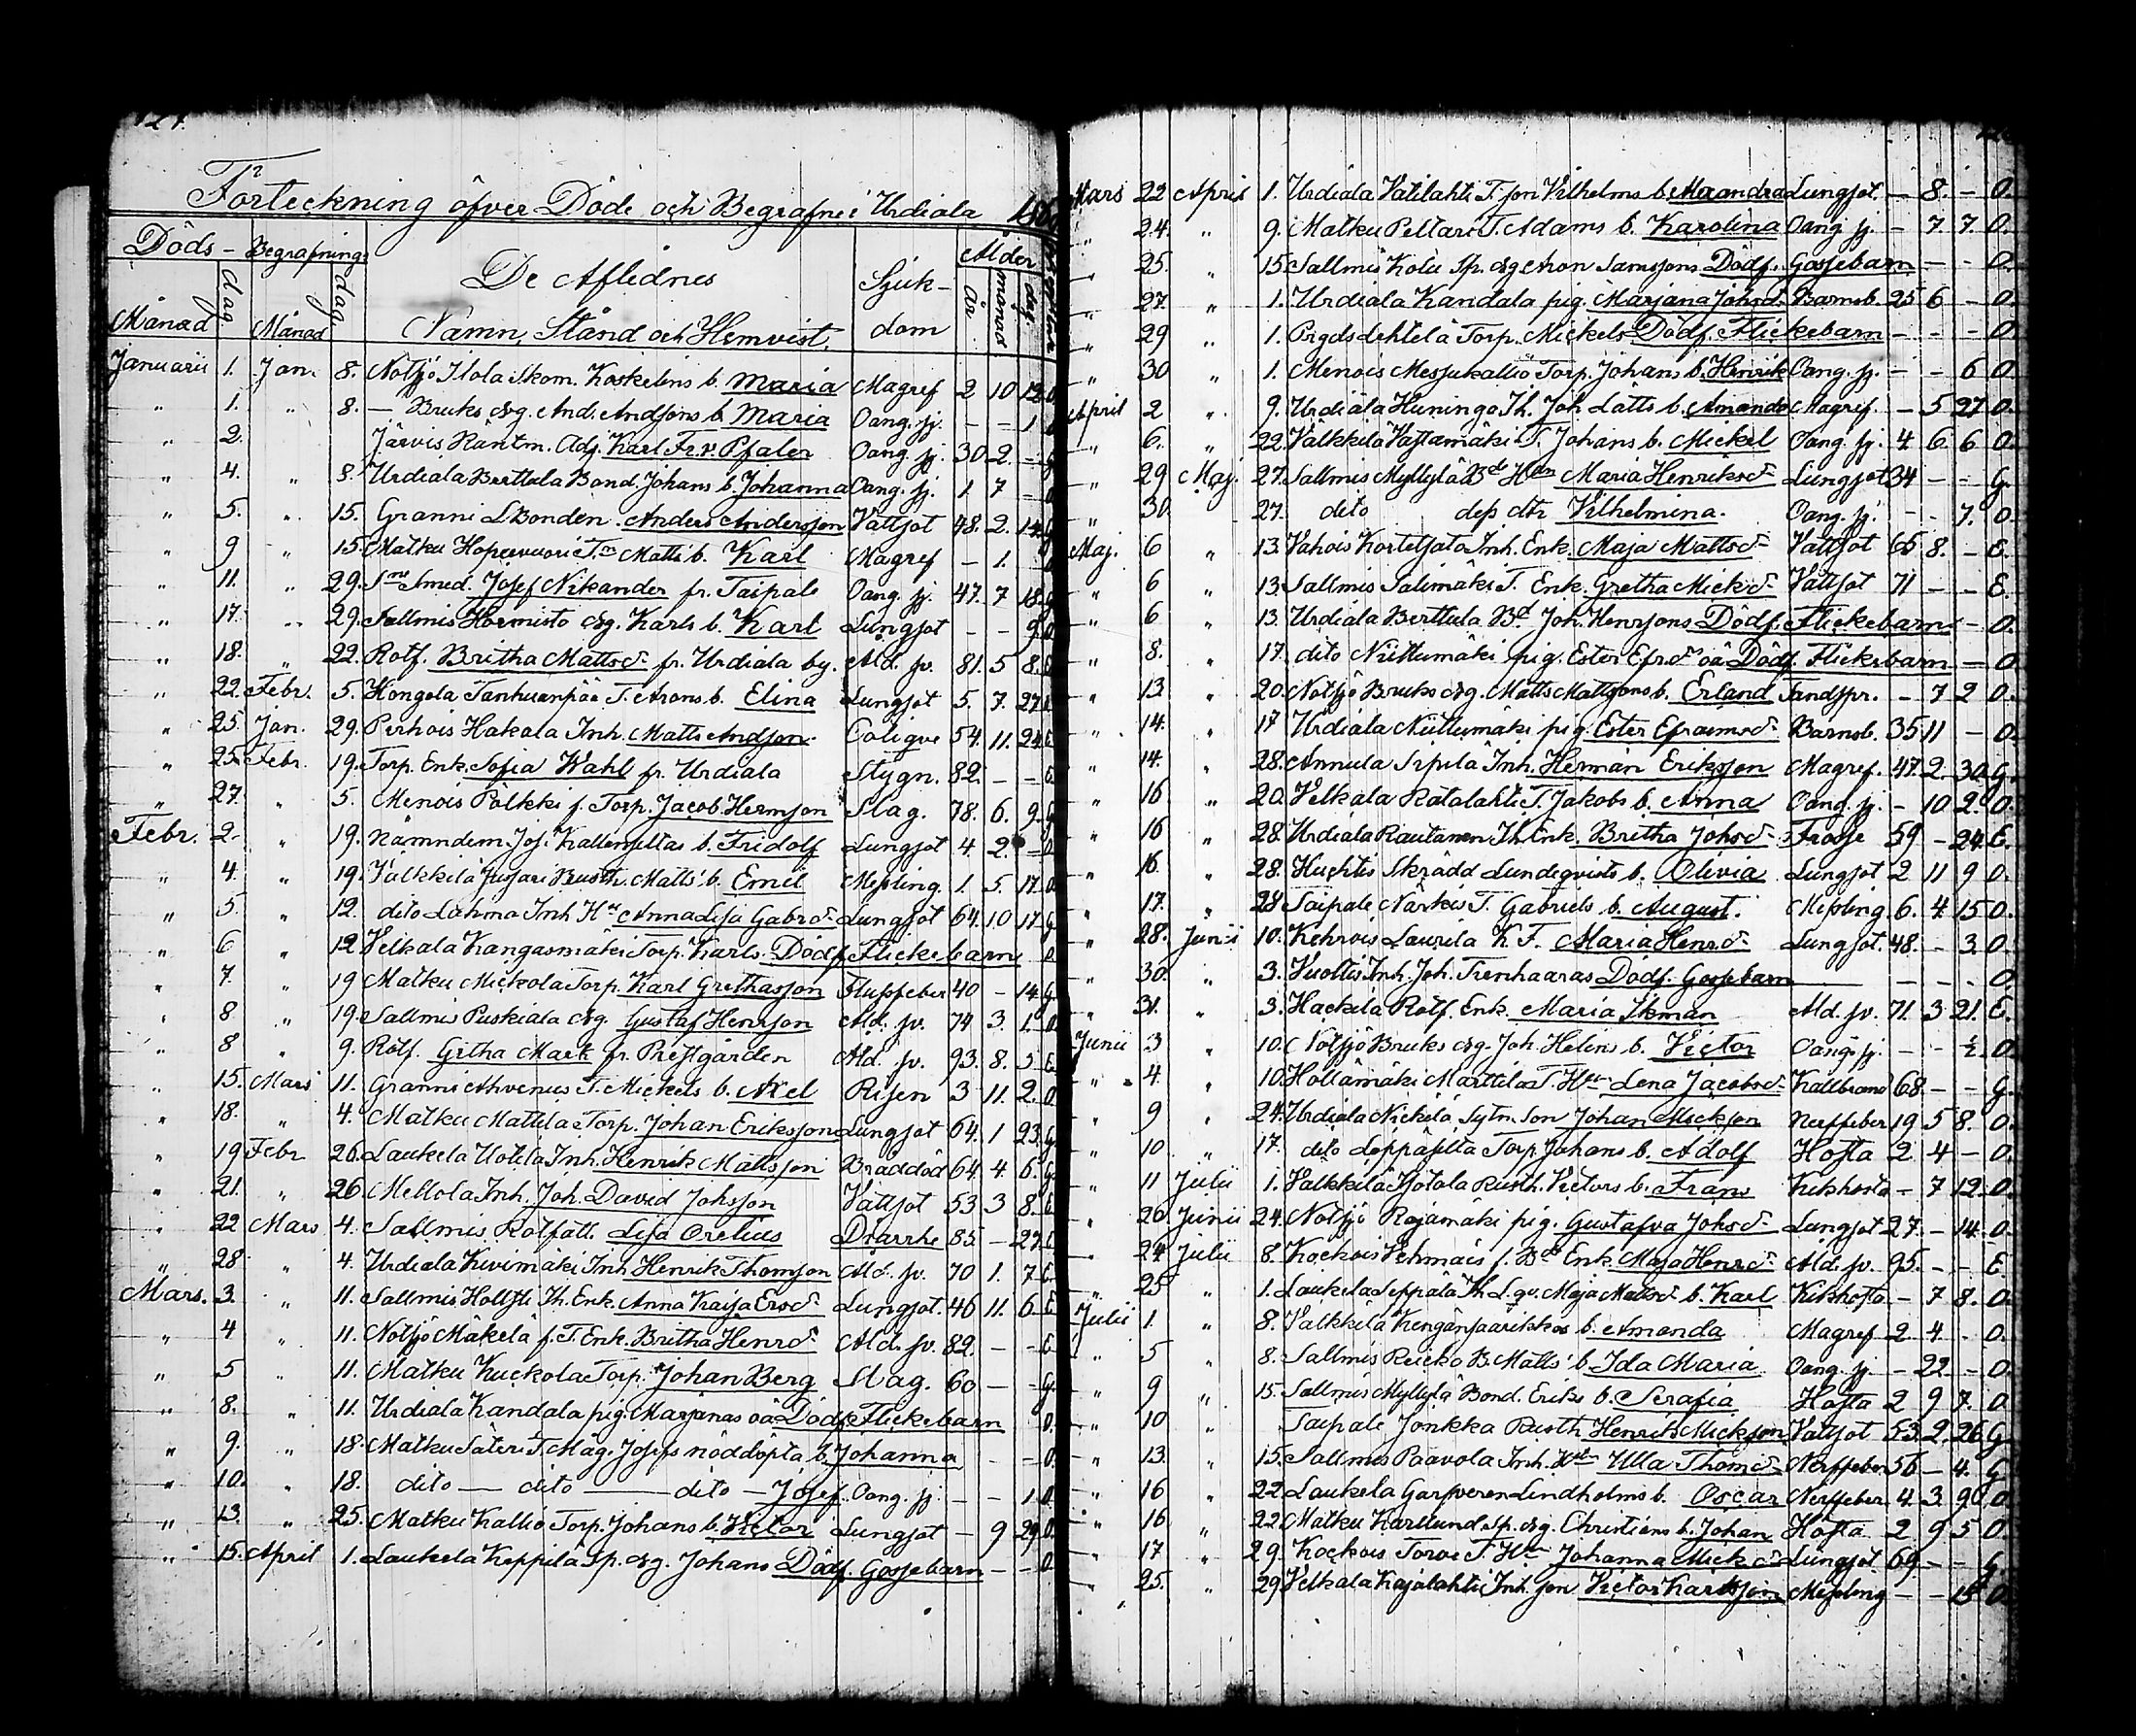 127.
Förteckning öfver Döde och Begrafne i Urdiala
Döds- Begrafnings De Aflednes Sjuk- Ålder
Månad dag Månad dag Namn, Stånd och Hemvist. dom år månad dag
Januarii 1. Jan. 8. Notsjö Ilola Skom. Koskelins b. Maria Magref 2 10 12 O
" 1. " 8. — Bruks drg. And. Andssons b. Maria Oang. sj. – – 1
" 2. Järvis Räntm. Adj. Karl Fr. v. Pfaler Oang. sj. 30 2. –
" 4. " 8. Urdiala Berttula Bond. Johans b. Johanna Oang. sj. 1. 7 –
" 5. " 15. Granni L Bonden Anders Andersson Vattsot 48. 2. 14
" 9 " 15. Matku Hopeavuori Tr. Matts b. Karl Magref – 1.
" 11. " 29. Smed. Josef Nikander fr. Taipale Oang. sj. 47. 7 18
" 17. " 29. Sallmis Hormisto drg. Karls b. Karl Lungsot – – 9 O
" 18. " 22. Rotf. Britha Mattsdr fr. Urdiala by. Åld. sv. 81. 5 8.
" 22. Febr. 5. Hongola Tanhuanpää T. Arons b. Elina Lungsot 5. 7. 27
" 25. Jan. 29. Perhois Hakala Inh. Matts Andsson Colique 54. 11. 24
" 25. Febr. 19. Torp. Enk. Sofia Wahl fr. Urdiala Stygn. 82. – –
" 27. " 5. Menois Pölkki f. Torp. Jacob Hermsson Slag. 78. 6. 9.
Febr. 2. " 19. Nämndem. Jos. Kallenseltas b. Fridolf Lungsot 4. 2. –
" 4. " 19. Välkkilä Jusari Rusth. Matts' b. Emil Messling. 1. 5. 17. O
" 5. " 12. dito Lahma Inh Hu Anna Lisa Gabrdr Lungsot 64. 10 17. G
" 6 " 12 Velkala Kangasmäki Torp. Karls Dödf. Flickebarn O.
" 7. " 19 Matku Mickola Torp. Karl Grethasson Flussfeber 40 – 14. G
" 8 " 19. Sallmis Puskiala drg. Gustaf Henrsson Åld. sv. 74 3. 1.
" 8 " 9. Rotf. Githa Mark fr. Prestgården Åld. sv. 93. 8. 5
" 15. Mars 11. Granni Ahvenus T. Mickels b. Axel Risen 3 11. 2. O
" 18. " 4. Matku Mattila Torp. Johan Eriksson Lungsot 64. 1 23. G
" 19 Febr. 26. Laukela Uotila Inh. Henrik Mattsson Bråddöd 64. 4. 6. G
" 21. " 26 Mellola Inh. Joh. David Johsson Vattsot 53 3 8.
" 22 Mars 4. Sallmis Rotfatt. Lisa Orelius Diarrhe 85. – 27.
" 28. " 4. Urdiala Kivimäki Inh Henrik Thomsson Åld. sv. 70 1. 7.
Mars. 3. " 11. Sallmis Th. Enk. Anna Kaisa Ersdr Lungsot. 46 11. 6
" 4 " 11. Notsjö Mäkelä f. T. Enk. Britha Henrdr Åld. sv. 82. – –
" 5 " 11. Matku Kuckola Torp. Johan Berg Slag. 60 – – G.
" 8. " 11. Urdiala Kandala pig. Marjanas oä Dödf. Flickebarn O.
" 9. " 18. Matku Säteri T. Mäg. Josefs nöddöpta b. Johanna – – O
" 10. " 18. dito — dito — dito – Josef. Oang. sj. – – 1 O
" 13. " 25. Matku Kallio Torp. Johans b. Victor Lungsot – 9 29 O.
" 15. April 1. Laukela Keppilä Sp. drg. Johans Dödf. Gossebarn – – O
Mars 22 April 1. Urdiala Vatilahti T. son Vilhelms b. Alexandra Lungsot. – 8. – O.
" 24. " 9. Matku Peltari T. Adams b. Karolina Oang. sj. – 7. 7. O.
" 25. " 15. Sallmis Kolu Sp. drg. Aron Samssons Dödf. Gossebarn – – O.
" 27. " 1. Urdiala Kandala pig. Marjana Johsdr Barnsb. 25 6 – O.
" 29 " 1. Prgds Lehtelä Torp. Mickels Dödf. Flickebarn – – – O.
" 30 " 1. Menois Messukallio Torp. Johans b. Henrik Oang. sj. – – 6 O.
April 2 " 9. Urdiala Huningo Th. Joh Lätts b. Amanda Magref. – 5 27 O.
" 6. " 22. Välkkilä Vastamäki T. Johans b. Mickel Oang. sj. 4 6 6 O.
" 29 Maj. 27. Sallmis Myllylä Bde Hun Maria Henriksdr Lungsot 34 – – G.
" 30. 27. dito dess dtr Vilhelmina. Oang. sj. – – 7. O.
Maj. 6 " 13. Vahois Inh. Enk. Maja Mattsdr Vattsot 65 8. – E.
" 6 " 13. Sallmis Salimäki T. Enk. Gretha Mickdr Vattsot 71 – – E.
" 6 " 13. Urdiala Berttula Bd Joh. Henrssons Dödf. Flickebarn – O.
" 8. " 17. dito Niittumäki pig. Ester Efrdrs oä Dödf. Flickebarn – O
" 13 " 20. Notsjö Bruks drg. Matts Mattssons b. Erland Tandspr. – 7 2 O.
" 14. " 17 Urdiala Niittumäki pig. Ester Efraimsdr Barnsb. 35 11 – O.
" 14. " 28. Annula Sipilä Inh. Herman Eriksson Magref. 47. 2. 30 G.
" 16 " 20. Velkala Ratalahti T. Jakobs b. Anna Oang. sj. – 10 2. O.
" 16 " 28. Urdiala Rautanen Th. Enk. Britha Johsdr Frosse 59 – 24. E.
" 16. " 28. Huchtis Skrädd Lundeqvists b. Olivia Lungsot 2 11 9 O.
" 17. " 28 Taipale Närkis T. Gabriels b. August. Messling 6. 4. 15 O.
" 28. Junii 10. Kehrois Laurila K. F. Maria Henrdr Lungsot. 48. – 3. O
" 30. " 3. Vuoltis Inh. Joh. Trenhaaras Dödf. Gossebarn – – – O
" 31. " 3. Hackela Rotf. Enk. Maria Ikman Åld. sv. 71. 3 21. E.
Junii 3 " 10. Notsjö Bruks drg. Joh. Helins b. Victor Oang. sj. – – ½ O.
" 4. " 10. Hollämäki Marttila T. Hu Lena Jacobsdr Kallbrand 68. – – G.
" 9 " 24. Urdiala Nickilä Sytn. Son Johan Mickson Nerffeber 19 5 8. O.
" 10 " 17. dito Leppäsilta Torp Johans b. Adolf Hosta 2. 4 – O.
" 11 Julii 1. Välkkilä Isotala Rusth. Victors b. Frans Kikhosta – 7 12. O.
" 20. Junii 24. Notsjö Rajamäki pig. Gustafva Johsdr Lungsot 27. – 14. O.
" 24 Julii 8. Kockois Vehmais f. Bds Enk. Maja Henrdr Åld. sv. 95. – – E.
" 25 " 1. Laukela Seppälä Th. L. qv. Maja Mattsdr b. Karl Kikhosta – 7 8. O.
Julii 1. " 8. Välkkilä b. Amanda Magref 2 4. – O.
" 5 " 8. Sallmis Reicko B. Matts' b. Ida Maria Oang. sj – 22 – O.
" 9 " 15. Sallmis Myllylä Bond. Eriks b. Serafia Hosta 2 9 7. O
" 10 " Taipale Jonkka Rusth Henrik Mickson Vattsot 53. 2. 26 G
" 13. " 15. Sallmis Paavola Inh. Hu Ulla Thomdr Nerffeber 56 – 4. G
" 16 " 22 Laukela Garfveren Lindholms b. Oscar Nerffeber 4. 3. 90
" 16. " 22. Matku Karllund Sp. drg. Christians b. Johan Hosta 2 9 5 O.
" 17 " 29. Kockois Torvi T. Hu Johanna Mickdr Lungsot 69 – – G
" 25. " 29 Velkala Kajalahti Inh. son Victor Karlsson Messling – – 15 O.